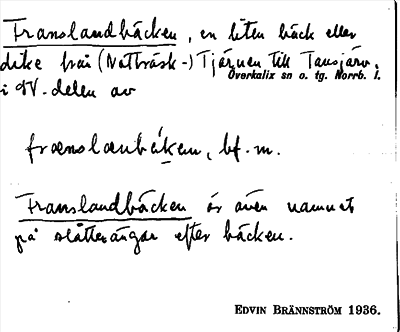 Franslandbäcken, en liten bäck eller
dike från (Natträsk-) Tjärnen till Tansjärv.
Överkalix sn o. tg. Norrb. l.
i NV-delen av
frænslanbäḱen, bf. m.
Franslandbäcken är även namnet
på slåtterängar efter bäcken.
EDVIN BRÄNNSTRÖM 1936.